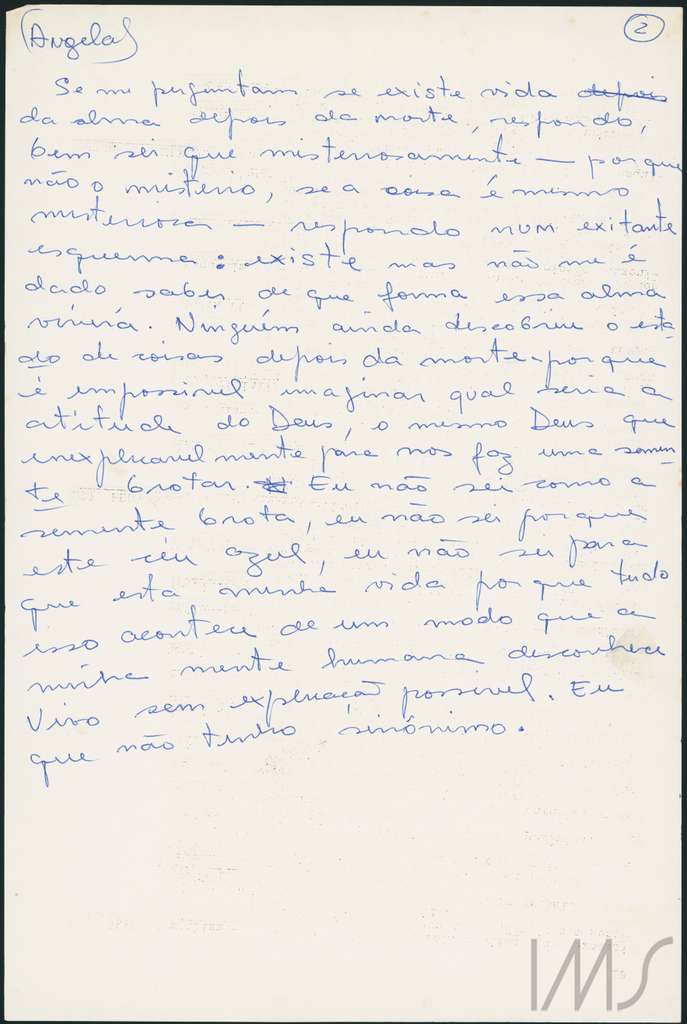 (Angela)
2
Se me perguntam se existe vida depois
da alma depois da morte, respondo,
bem sei que misteriosamente — porque
não o mistério, se a coisa é mesmo
misteriosa — respondo num exitante
esquema: existe mas não me é
dado saber de que forma essa alma
viverá. Ninguém ainda descobriu o esta
do de coisas depois da morte porque
é impossivel imaginar qual seria a
atitude do Deus, o mesmo Deus que
inexplicavelmente para nos faz uma semen
te brotar. Eu não sei como a
semente brota, eu não sei porque
este céu azul, eu não sei para
que esta minha vida porque tudo
isso acontece de um modo que a
minha mente humana desconhece
Vivo sem explicação possivel. Eu
que não tenho sinônimo.
IMS